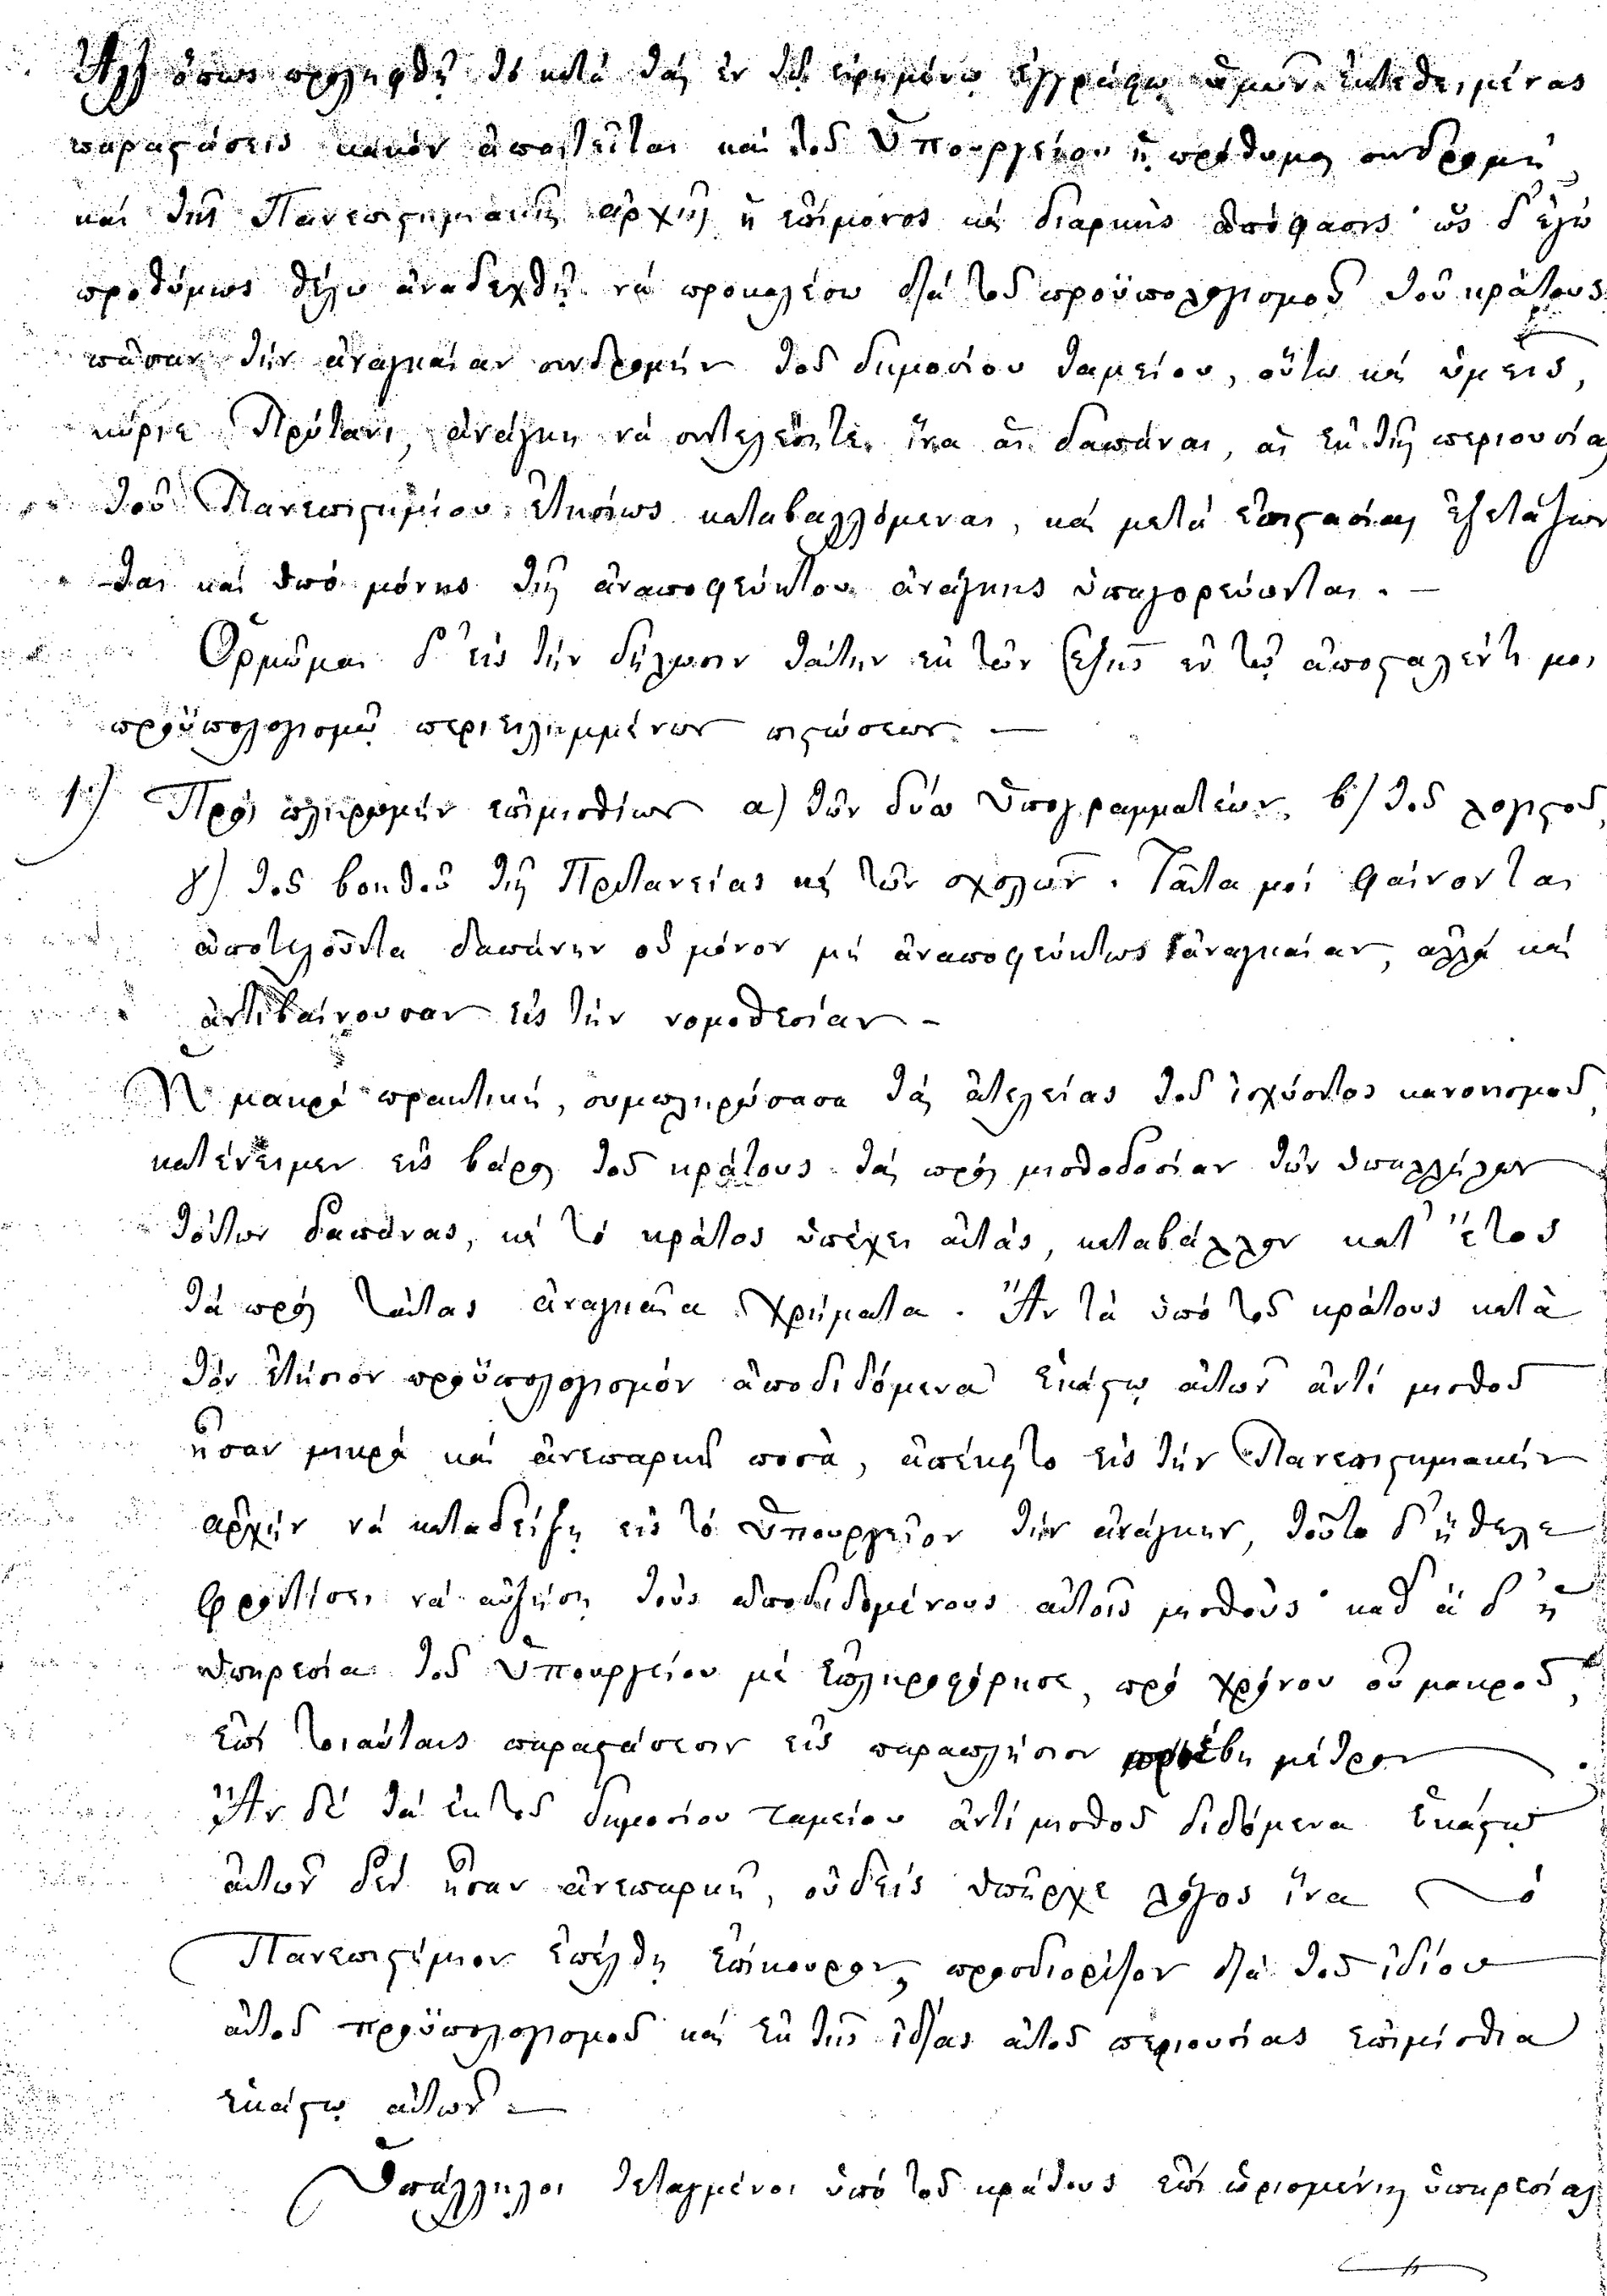 Ἀλλ' ὅπως προληφθῇ τὸ κατὰ τὰς ἐν τῷ εἰρημένῳ ἐγγράφῳ ὑμῶν ἐκτεθειμένας
παραστάσεις κακὸν ἀπαιτεῖται καὶ τοῦ Ὑπουργείου ἡ πρόθυμος συνδρομὴ
καὶ τῆς Πανεπιστημιακῆς ἀρχῆς ἡ ἐπίμονος καὶ διαρκὴς ἀπόφασις· ὡς δ' ἐγὼ
προθύμως θέλω ἀναδεχθῆ νὰ προκαλέσω διὰ τοῦ προϋπολογισμοῦ τοῦ κράτους
πᾶσαν τὴν ἀναγκαίαν συνδρομὴν τοῦ δημοσίου ταμείου, οὕτω καὶ ὑμεῖς,
κύριε Πρύτανι, ἀνάγκη νὰ συντελέσητε ἵνα αἱ δαπάναι, αἱ ἐκ τῆς περιουσίας
τοῦ Πανεπιστημίου ἐτησίως καταβαλλόμεναι, καὶ μετὰ ἐπιστασίας ἐξετάζων
ται καὶ ὑπὸ μόνης τῆς ἀναποφεύκτου ἀνάγκης ὑπαγορεύωνται. —
Ὁρμῶμαι δ' εἰς τὴν δήλωσιν ταύτην ἐκ τῶν ἑξῆς ἐν τῷ ἀποσταλέντι μοι
προϋπολογισμῷ περιειλημμένων πιστώσεων. —
1) Πρὸς πληρωμὴν ἐπιμισθίων α) τῶν δύω Ὑπογραμματέων, β) τοῦ λογιστοῦ,
γ) τοῦ βοηθοῦ τῆς Πρυτανείας καὶ τῶν σχολῶν. Ταῦτα μοὶ φαίνονται
ἀποτελοῦντα δαπάνην οὐ μόνον μὴ ἀναποφεύκτως ἀναγκαίαν, ἀλλὰ καὶ
ἀντιβαίνουσαν εἰς τὴν νομοθεσίαν —
Ἡ μακρὰ πρακτική, συμπληρώσασα τὰς ἀτελείας τοῦ ἰσχύοντος κανονισμοῦ,
κατένειμεν εἰς βάρος τοῦ κράτους τὰς πρὸς μισθοδοσίαν τῶν ὑπαλλήλων
τούτων δαπάνας, καὶ τὸ κράτος ὑπέχει αὐτάς, καταβάλλον κατ' ἔτος
τὰ πρὸς ταύτας ἀναγκαῖα χρήματα. Ἂν τὰ ὑπὸ τοῦ κράτους κατὰ
τὸν ἐτήσιον προϋπολογισμὸν ἀποδιδόμενα ἑκάστῳ αὐτῶν ἀντὶ μισθοῦ
ἦσαν μικρὰ καὶ ἀνεπαρκῆ ποσά, ἀπέκειτο εἰς τὴν Πανεπιστημιακὴν
ἀρχὴν νὰ καταδείξῃ εἰς τὸ Ὑπουργεῖον τὴν ἀνάγκην, τοῦτο δ' ἤθελε
φροντίσει νὰ αὐξήσῃ τοὺς ἀποδιδομένους αὐτοῖς μισθούς· καθ' ἃ δ' ἡ
ὑπηρεσία τοῦ Ὑπουργείου μὲ ἐπληροφόρησε, πρὸ χρόνου οὐ μακροῦ,
ἐπὶ τοιαύταις παραστάσεσιν εἰς παραπλήσιον προέβη μέτρον.
Ἂν δὲ τὰ ἐκ τοῦ δημοσίου ταμείου ἀντὶ μισθοῦ διδόμενα ἑκάστῳ
αὐτῶν δὲν ἦσαν ἀνεπαρκῆ, οὐδεὶς ὑπῆρχε λόγος ἵνα τὸ
Πανεπιστήμιον ἐπέλθῃ ἐπίκουρον, προσδιορίζον διὰ τοῦ ἰδίου
αὐτοῦ προϋπολογισμοῦ καὶ ἐκ τῆς ἰδίας αὐτοῦ περιουσίας ἐπιμίσθια
ἑκάστῳ αὐτῶν —
Ὑπάλληλοι τεταγμένοι ὑπὸ τοῦ κράτους ἐπὶ ὡρισμένης ὑπηρεσίας